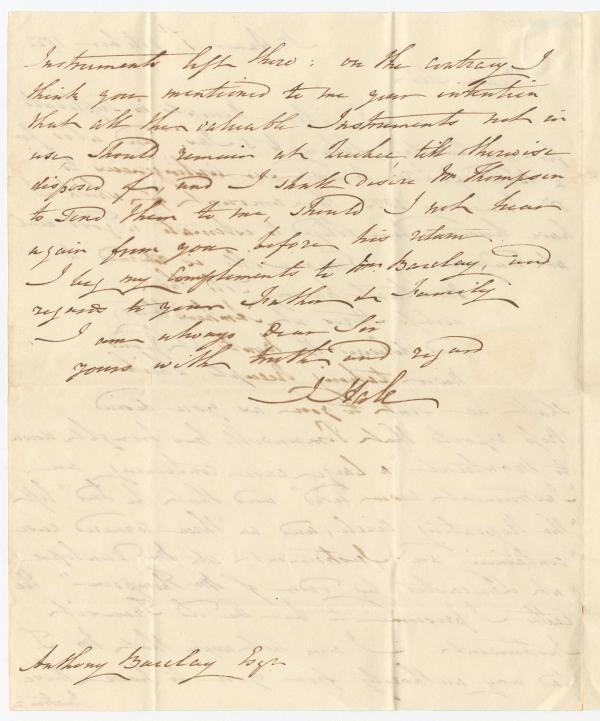 Instruments left there: on the contrary I
think you mentioned to me your intention
that all the valuable Instruments not in
use should remain at Quebec, till otherwise
disposed of, and I shall desire Mr Thompson
to send them to me, should I not hear
again from you before his return
I beg my Compliments to Mrs Barclay, and
regards to your Father & Family
I am always Dear Sir
yours with truth and regard
J Hale
Anthony Barclay Esqr